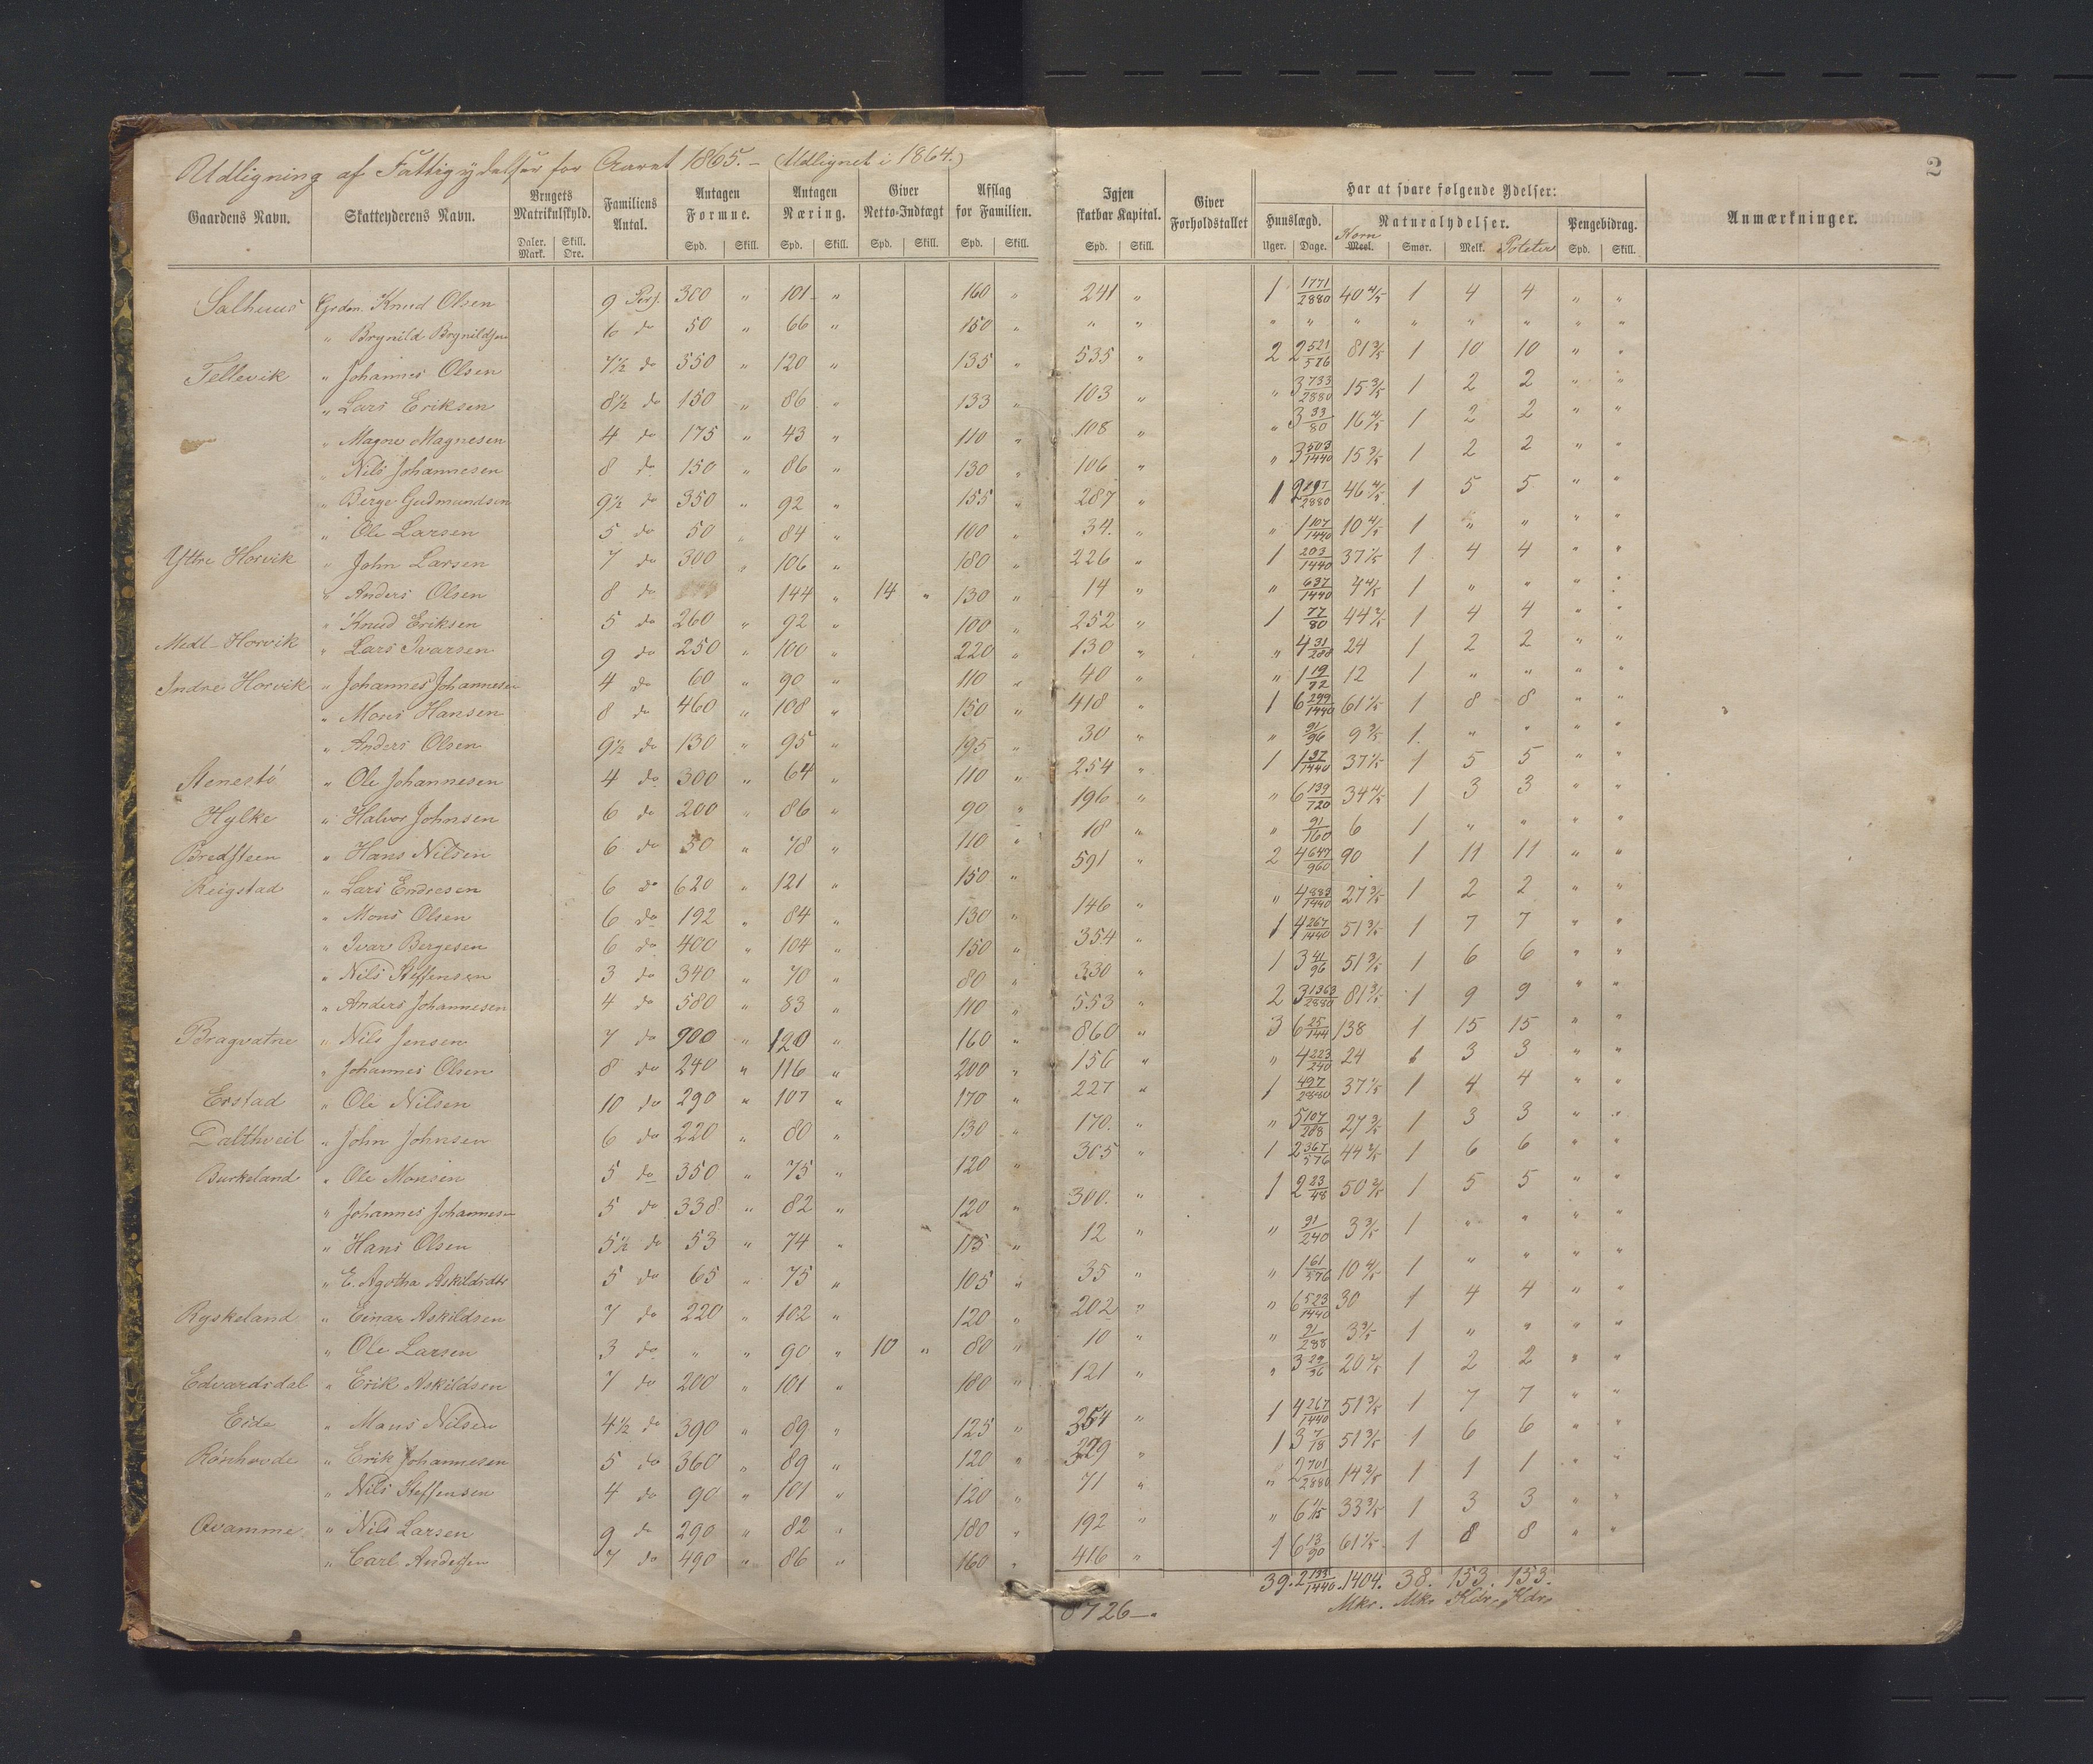 Udligning af Fattigydelser for Aaret 1865. – (Udlignet i 1864.)
2
Gaardens Navn. Skatteyderens Navn. Brugets Matrikulskyld. Familiens Antal. Antagen Formue. Antagen Næring. Giver Netto-Indtægt Afslag for Familien. Igjen skatbar Kapital. Giver Forholdstallet Har at svare følgende Ydelser: Anmærkninger.
Huuslægd. Naturalydelser. Pengebidrag.
Daler. Mark. Skill. Øre. Spd. Skill. Spd. Skill. Spd. Skill. Spd. Skill. Spd. Skill. Uger. Dage. Korn Meel. Smør. Melk. Poteter Spd. Skill.
Salhuus Grdm. Knud Olsen 9 Pers. 300 " 101 " 160 " 241 " 1 1771/2880 40 4/5 1 4 4 " "
" Brynild Brynildsen 6 do 50 " 66 " 150 " " " " " " " " " " "
Tellevik " Johannes Olsen 7½ do 550 " 120 " 135 " 535 " 2 2 521/576 81 3/5 1 10 10 " "
" Lars Eriksen 8½ do 150 " 86 " 133 " 103 " " 3 733/2880 15 3/5 1 2 2 " "
" Magne Magnesen 4 do 175 " 43 " 110 " 108 " " 3 33/80 16 4/5 1 2 2 " "
" Nils Johannesen 8 do 150 " 86 " 130 " 106 " " 3 503/1440 15 3/5 1 2 2 " "
" Berge Gudmundsen 9½ do 350 " 92 " 155 " 287 " 1 2 /2880 46 4/5 1 5 5 " "
" Ole Larsen 5 do 50 " 84 " 100 " 34. " " 1 107/1440 10 4/5 1 " " " "
Yttre Horvik " John Larsen 7 do 300 " 106 " 180 " 226 " 1 203/1440 37 1/5 1 4 4 " "
" Anders Olsen 8 do 144 " 14 " 130 " 14 " " 637/1440 4 4/5 1 " " " "
" Knud Eriksen 5 do 260 " 92 " 100 " 252 " 1 77/80 44 2/5 1 4 4 " "
Medl-Horvik " Lars Ivarsen 9 do 250 " 100 " 220 " 130 " " 4 31/288 24 1 2 2 " "
Indre Horvik " Johannes Johannesen 4 do 60 " 90 " 110 " 40 " " 1 19/72 12 1 " " " "
" Mons Hansen 8 do 460 " 108 " 150 " 418 " 1 6 299/1440 61 1/5 1 8 8 " "
" Anders Olsen 9½ do 130 " 95 " 195 " 30 " " 91/96 9 3/5 1 " " " "
Stenestø " Ole Johannesen 4 do 300 " 64 " 110 " 254 " 1 1 37/1440 37 1/5 1 5 5 " "
Hylke " Halvor Johnsen 6 do 200 " 86 " 90 " 196 " " 6 139/720 34 4/5 1 3 3 " "
Bredsteen " Hans Nilsen 6 do 50 " 78 " 110 " 18 " " 91/160 6 1 " " " "
Reigstad " Lars Endresen 6 do 620 " 121 " 150 " 591 " 2 4 647/960 90 1 11 11 " "
" Mons Olsen 6 do 192 " 84 " 130 " 146 " " 4 883/1440 27 3/5 1 2 2 " "
" Ivar Bergesen 6 do 400 " 104 " 150 " 354 " 1 4 267/1440 51 3/5 1 7 7 " "
" Nils Steffensen 3 do 340 " 70 " 80 " 330 " 1 3 41/96 51 3/5 1 6 6 " "
" Anders Johannesen 4 do 580 " 83 " 110 " 553 " 2 3 1363/2880 81 3/5 1 9 9 " "
Bragvatne " Nils Jensen 7 do 900 " 120 " 160 " 860 " 3 6 25/144 138 1 15 15 " "
" Johannes Olsen 8 do 240 " 116 " 200 " 156 " " 4 223/240 24 1 3 3 " "
Erstad " Ole Nilsen 10 do 290 " 107 " 170 " 227 " 1 497/2880 37 1/5 1 4 4 " "
Dalthveit " John Johnsen 6 do 220 " 80 " 130 " 170. " " 5 107/288 27 3/5 1 3 3 " "
Burkeland " Ole Monsen 5 do 350 " 75 " 120 " 305 " 1 2 367/576 44 2/5 1 6 6 " "
" Johannes Johannesen 5 do 338 " 82 " 120 " 300. " 1 2 23/48 50 2/5 1 5 5 " "
" Hans Olsen 5½ do 53 " 74 " 115 " 12 " " 91/240 3 3/5 1 " " " "
" E. Agotha Askildsdtr 5 do 65 " 75 " 105 " 35 " " 1 61/576 10 4/5 1 " " " "
Ryskeland " Einar Askildsen 7 do 220 " 102 " 120 " 202 " " 6 523/1440 30 1 4 4 " "
" Ole Larsen 3 do " " 90 " 10 " 80 " 10 " " 91/288 3 3/5 1 " " " "
Edvardsdal " Erik Askildsen 7 do 200 " 101 " 180 " 121 " " 3 29/36 20 2/5 1 2 2 " "
Eide " Mons Nilsen 4½ do 390 " 89 " 125 " 354 " 1 4 267/1440 51 3/5 1 7 7 " "
Rønhovde " Erik Johannesen 5 do 360 " 89 " 120 " 329 " 1 3 7/18 51 3/5 1 6 6 " "
" Nils Steffensen 4 do 90 " 101 " 120 " 71 " " 2 701/2880 14 2/5 1 1 1 " "
Qvamme " Nils Larsen 9 do 290 " 82 " 180 " 192 " " 6 1/15 33 3/5 1 3 3 " "
" Carl Andersen 7 do 490 " 86 " 160 " 416 " 1 6 13/90 61 1/5 1 8 8 " "
39. 2 133/1440. 1404. 38. 153. 153.
8726 –" Mkr. Mkr Kdr. Kdr.